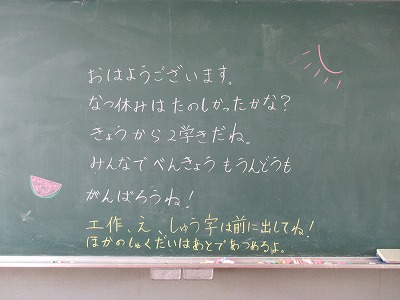 おはようございます。
なつ休みは たのしかったかな?
きょうから2学きだね。
みんなで べんきょう もうんどうも
がんばろうね!
工作、え、しゅう字は前に出してね!
ほかのしゅくだいはあとであつめるよ。